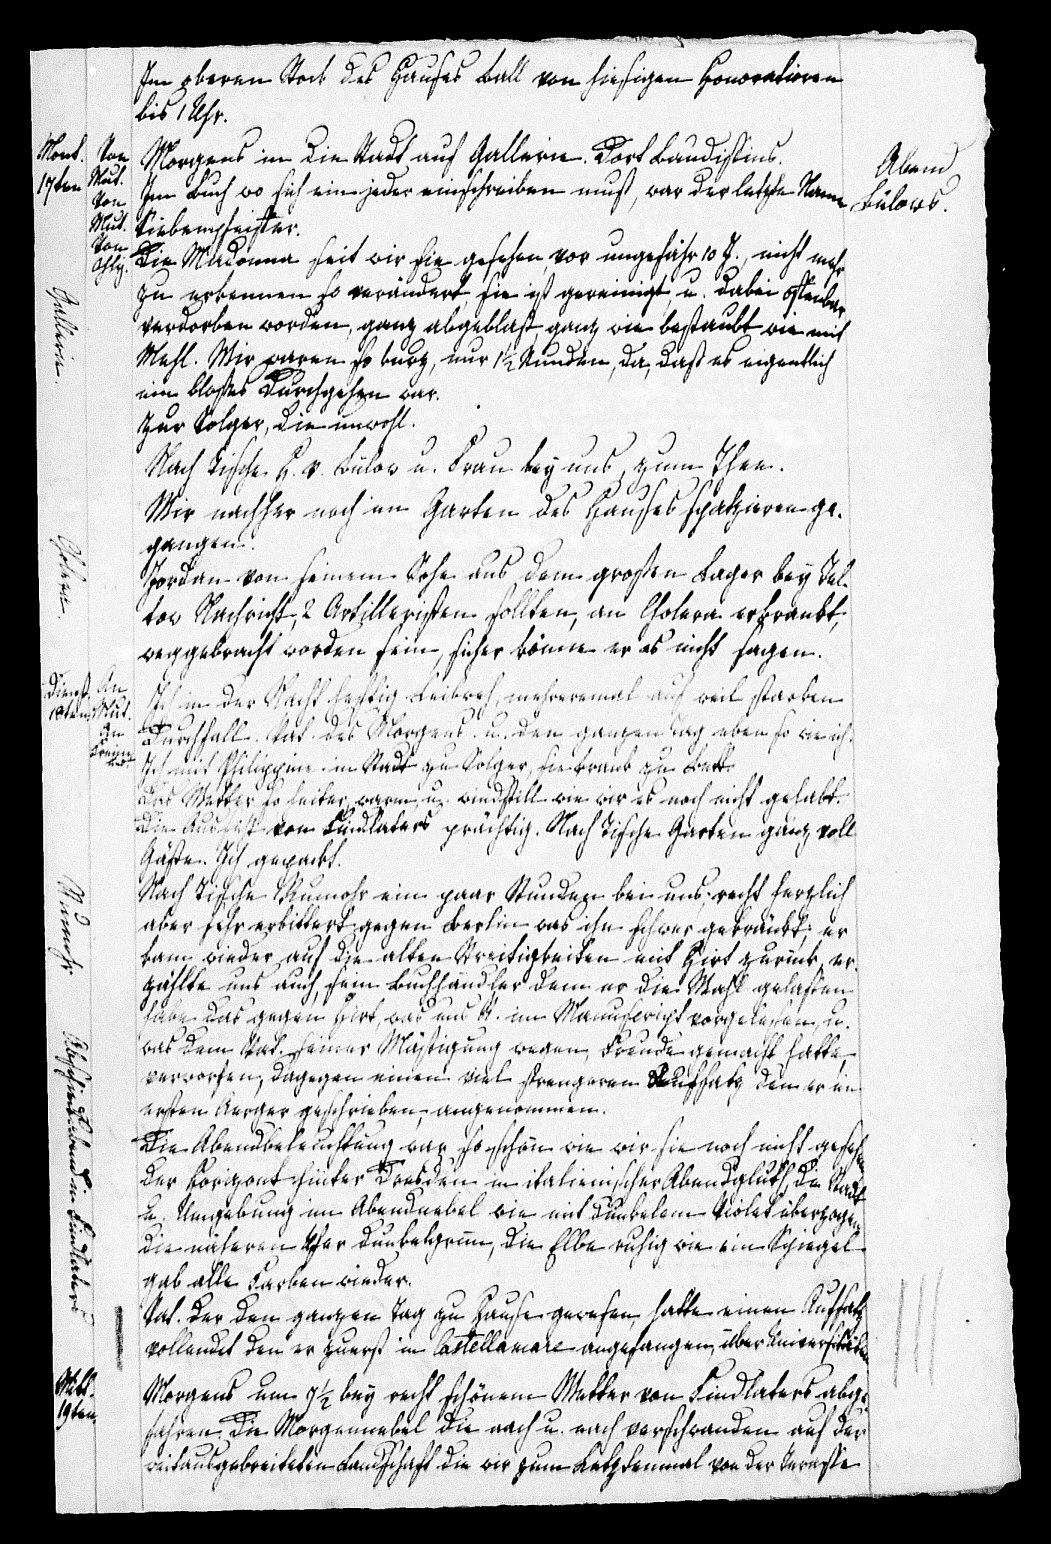 Im oberen Stock des Hauses Ball von hiesigen Honoratioren
bis 1 Uhr.
Mont.
17ten
Von
Mut.
Von
Mut.
Von
Morgens in die Stadt auf Gallerie. Dort Baudissins.
Im Buch wo sich ein jeder einschreiben muß, war der letzte Name
Siebenpfeiffer.
Abend
Bülows.
Die Madonna seit wir sie gesehen, vor ungefähr 10 J., nicht mehr
zu erkennen so verändert, sie ist gereinigt u. dabei offenbar
verdorben worden, ganz abgeblaßt, ganz wie bestaubt wie mit
Mehl. Wir waren so kurz, nur 1½ Stunden, da, daß es eigentlich
ein bloßes Durchgehen war.
Gallerie.
Zur Solger, die unwohl.
Nach Tische H. v. Bülow u. Frau bey uns, zum Thee.
Wir nachher noch im Garten des Hauses spatzieren ge-
gangen.
Cholera.
Jordan von seinem Sohn aus dem großen Lager bey Tel-
tow Nachricht, 2 Artilleristen sollten, an Cholera erkrankt,
weggebracht worden sein, sicher könne er es nicht sagen.
Dienst.
18ten
An
Mut.
An
Ich in der Nacht heftig Leibweh, mehreremal auf weil starken
Durchfall. Vat. des Morgens u. den ganzen Tag eben so wie ich.
Ich mit Philippine in Stadt zu Solger, sie krank zu Bett.
Das Wetter so heiter, warm u. windstill wie wir es noch nicht gehabt.
Die Aussicht von Findlaters prächtig. Nach Tische Garten ganz voll
Gäste. Ich gepackt.
Rumohr
Nach Tische Rumohr ein paar Stunden bei uns; recht herzlich
aber sehr erbittert gegen Berlin was ihn schwer gekränkt; er
kam wieder auf die alten Streitigkeiten mit Hirt zurück, er-
zählte uns auch, sein Buchhändler dem er die Wahl gelassen
habe das gegen Hirt, was uns R. im Manuscript vorgelesen, u.
was dem Vat. seiner Mäßigung wegen, Freude gemacht hatte,
verworfen, dagegen einen viel strengeren Aufsatz den er im
ersten Aerger geschrieben, angenommen.
Abschiedsabend in Findlaters
Die Abendbeleuchtung war so schön wie wir sie noch nicht gesehen
der Horizont hinter Dresden in italienischer Abendgluth, die Stadt
u. Umgebung im Abendnebel wie mit dunkelem Violet überzogen
die näheren Ufer dunkelgrün, die Elbe ruhig wie ein Spiegel
gab alle Farben wieder.
Vat. der den ganzen Tag zu Hause gewesen, hatte einen Aufsatz
vollendet den er zuerst in Castellamare angefangen, über Universitäten
Mitt.
19ten
Morgens um 7½ bey recht schönem Wetter von Findlaters abge-
fahren. Die Morgennebel die nach u. nach verschwanden auf der
weitausgebreiteten Landschaft die wir zum Letztenmal von der Terasse